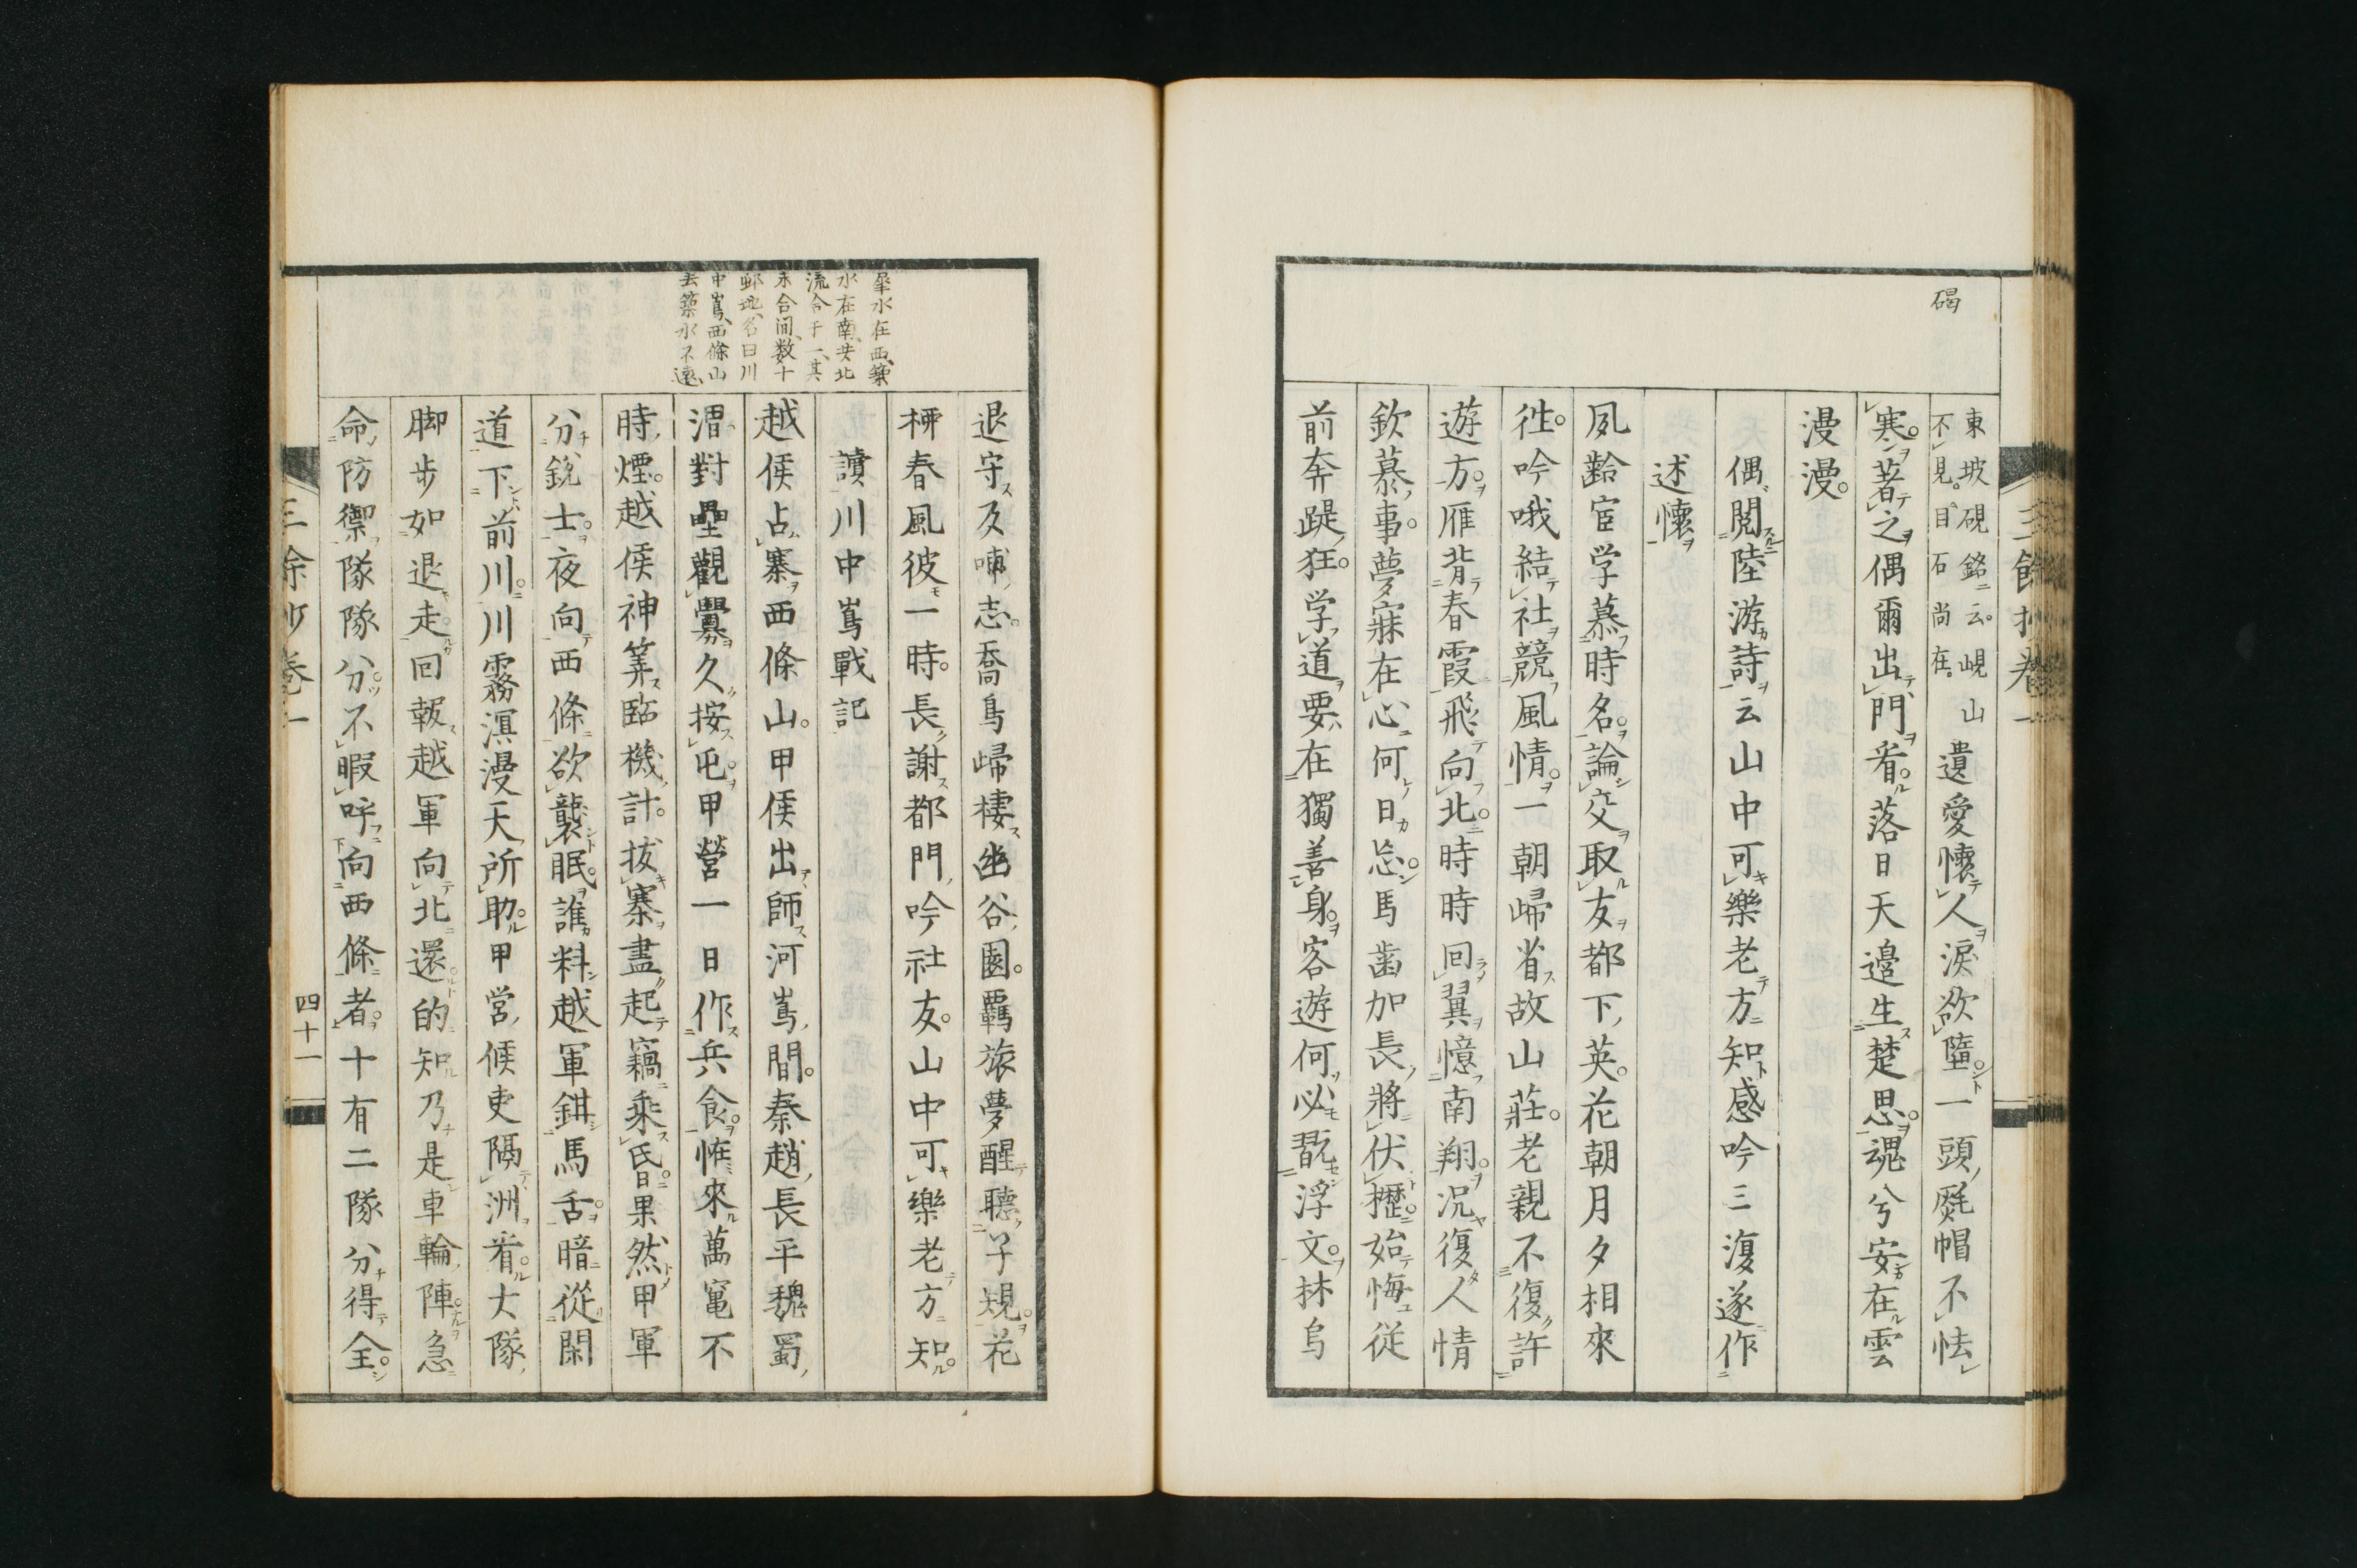 三餘抄卷一
碣
東坡硯銘云峴山
不見目石尚在
遺愛懷人淚欲墮一頭氈帽不怯
寒著之偶爾出門看落日天邉生楚思魂兮安在雲
漫漫
偶閲陸游詩云山中可樂老方知感吟三復遂作
述懷
夙齡宦学慕時名論交取友都下英花朝月夕相來
徃吟哦結社競風情一朝歸省故山莊老親不復許
遊方雁背春霞飛向北時時回翼憶南翔况復人情
欽慕事夢寐在心何日忘馬齒加長將伏櫪始悔從
前奔踶狂学道要在獨善身客遊何必翫浮文林烏
犀水在西築
水在南共北
流合于一其
未合间数十
邨地名曰川
中嶌西條山
去築水不遠
退守反哺志喬鳥歸棲幽谷園羇旅夢醒聽子規花
柳春風彼一時長謝都門吟社友山中可樂老方知
讀川中嶌戰記
越侯占寨西條山甲侯出師河嶌間秦趙長平魏蜀
渭對壘觀釁久按屯甲營一日作兵食怪來萬竃不
時煙越侯神筭臨機計拔寨盡起竊乘昏果然甲軍
分銳士夜向西條欲襲眠誰料越軍鉗馬舌暗從閑
道下前川川霧溟漫天所助甲営候吏隔洲看大隊
脚步如退走回報越軍向北還的知乃是車輪陣急
命防禦隊隊分不暇呼向西條者十有二隊分得全
三餘抄卷一
四十一